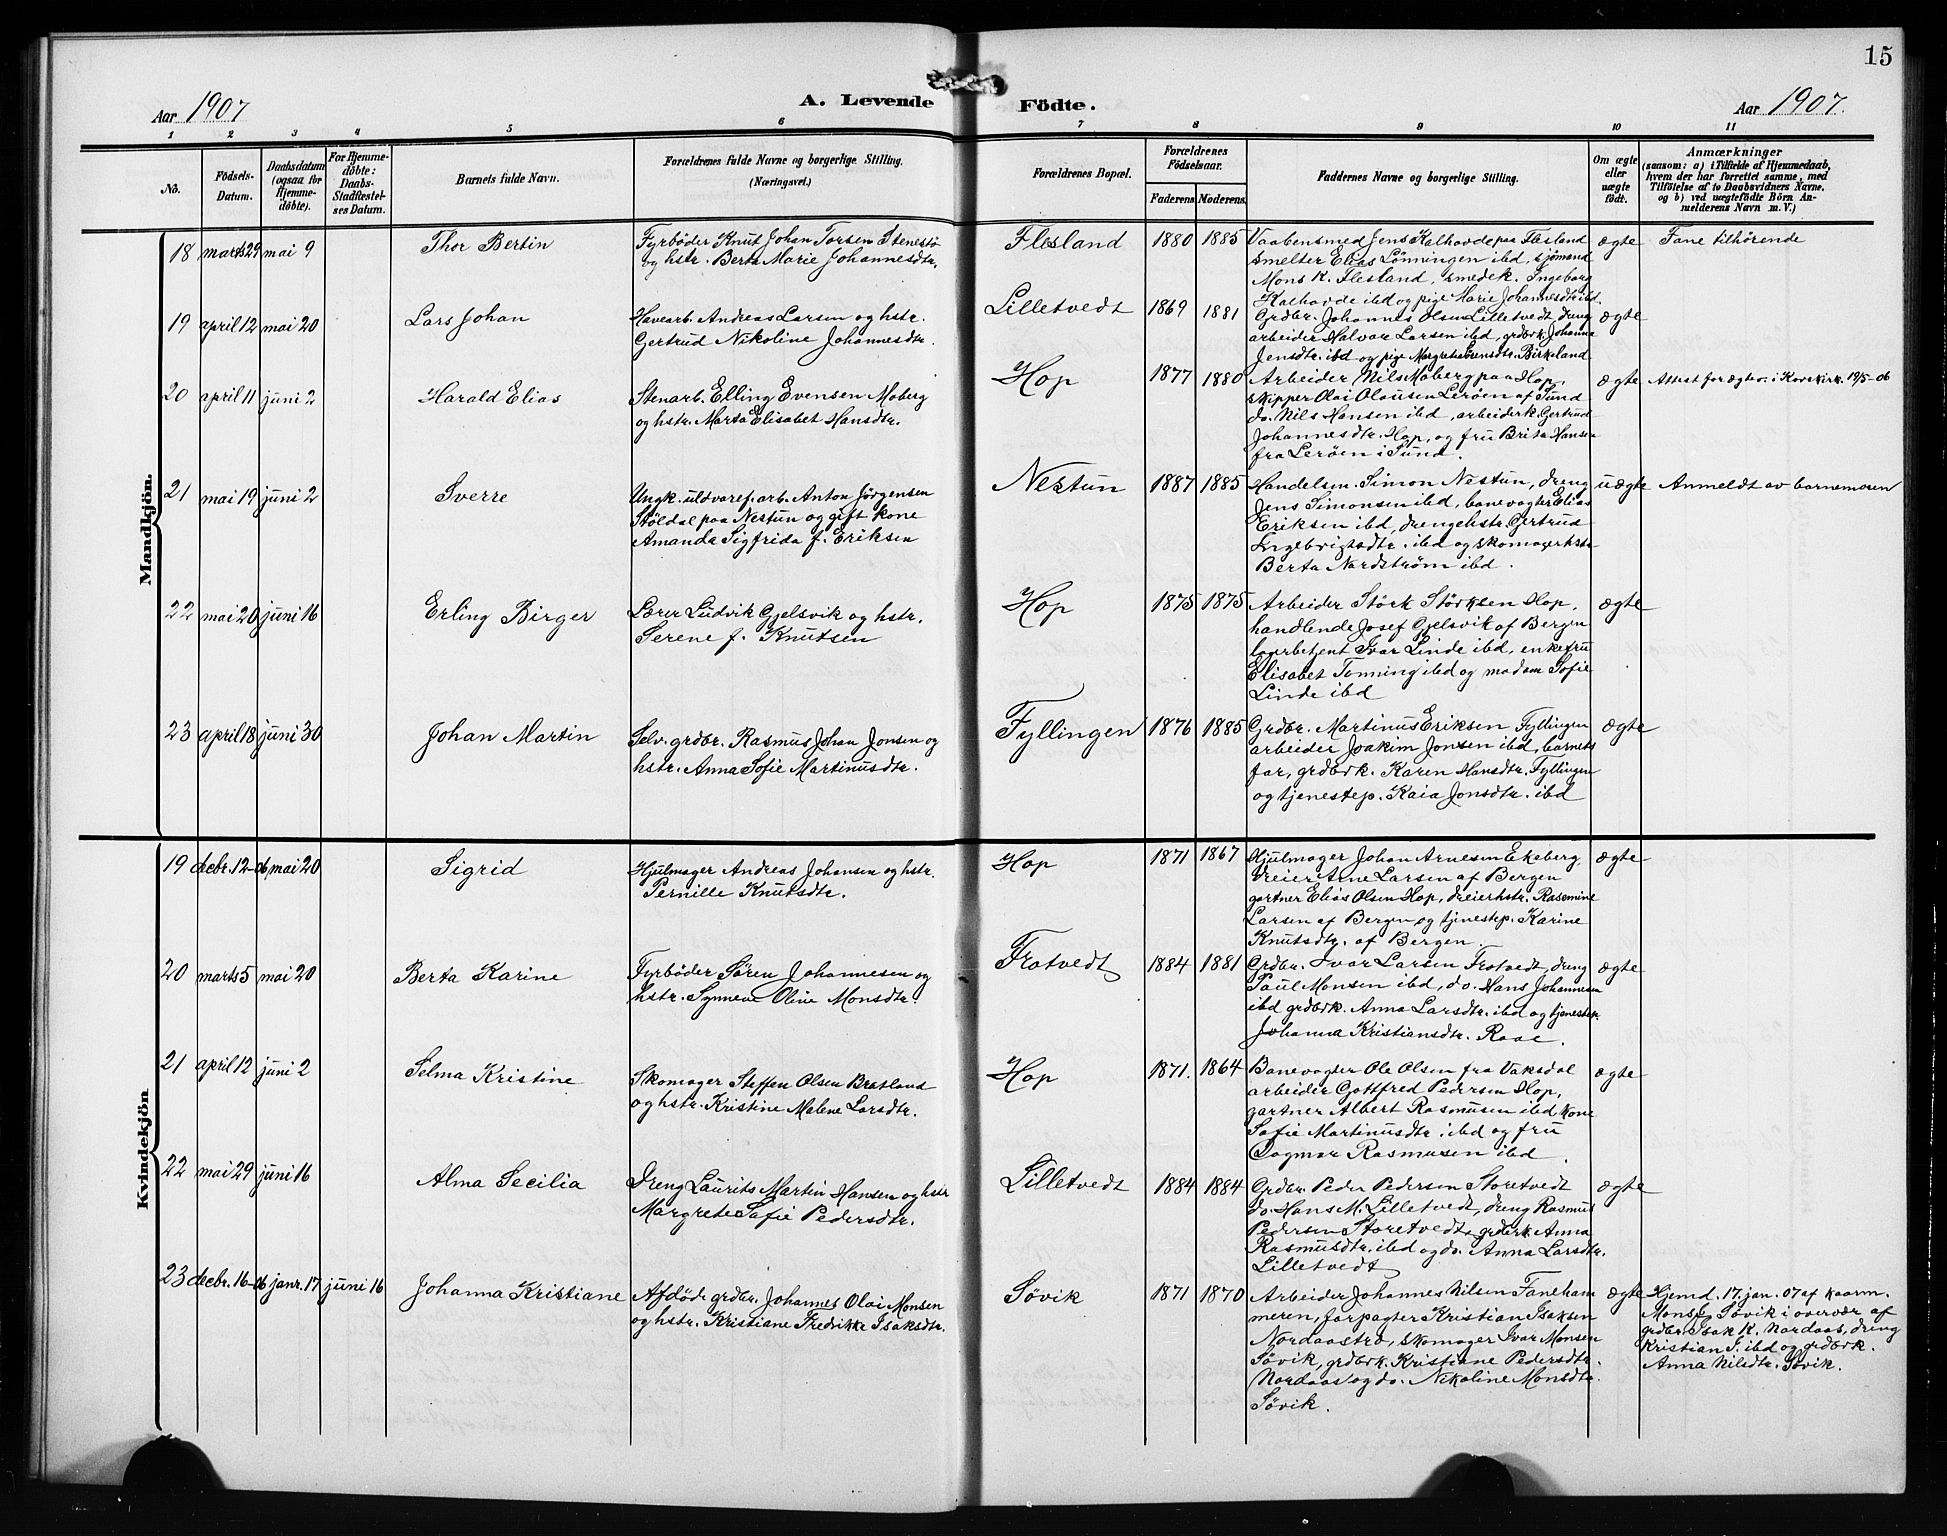 15
Aar 1907
A. Levende
Födte.
Aar 1907.
1 2 3 4 5 6 7 8 9 10 11
No.
Födsels-
Datum.
Daabsdatum
(ogsaa for
Hjemme-
döbte).
For Hjemme-
döbte:
Daabs-
Stadfæstel-
ses Datum.
Barnets fulde Navn.
Forældrenes fulde Navne og borgerlige Stilling.
(Næringsvei.)
Forældrenes Bopæl.
Forældrenes
Födselsaar.
Faderens
Moderens
Faddernes Navne og borgerlige Stilling.
Om ægte
eller
uægte
födt.
Anmærkninger
(saasom: a) i Tilfælde af Hjemmedaab,
hvem der har forrettet samme, med
Tilföielse af to Daabsvidners Navne,
og b) ved uægtefödte Börn An-
melderens Navn m. V.)
Mandkjön.
18 marts 29 mai 9
Thor Bertin
Fyrbøder Knut Johan Torsen Stenestø
og hstr. Berta Marie Johannesdtr.
Flesland
1880 1885
Vaabensmed Jens Kalhovde paa Flesland
smelter Elias Lønningen ibd, sjømand
Mons K. Flesland, smedek. Ingeborg
Kalhovde ibd og pige Marie Johannesdtr ibd.
ægte
Fane tilhørende
19 april 12 mai 20
Lars Johan
Havearb. Andreas Larsen og hstr.
Gertrud Nikoline Johannesdtr.
Lilletvedt
1869 1881
Grdbr. Johannes Olsen Lilletvedt, dreng
arbeider Halvar Larsen ibd, grdbrk. Johanna
Jensdtr. ibd og pige Margrete Jensdtr. Birkeland
ægte
20 april 11 juni 2
Harald Elias
Stenarb. Elling Evensen Moberg
og hstr. Marta Elisabet Hansdtr.
Hop
1877 1880
Arbeider Nils Moberg paa Hop,
skipper Olai Olausen Lerøen af Sund
do. Nils Hansen ibd, arbeiderk. Gertrud
Johannesdtr. Hop, og fru Brita Hansen
fra Lerøen i Sund.
ægte
Attest for ægtev. i Korskirk. 19/5-06
21 mai 19 juni 2
Sverre
Ungk. uldvaref. arb. Anton Jørgensen
Støldal paa Nestun og gift kone
Amanda Sigfrida f. Eriksen
Nestun
1887 1885
Handelsm. Simon Nestun, dreng
Jens Simonsen ibd, banevogter Elias
Eriksen ibd, drengehstr. Gertrud
Ingebrigtsdtr. ibd og skomagerhstr
Berta Nordstrøm ibd.
uægte
Anmeldt av barnemoren
22 mai 20 juni 16
Erling Birger
Lærer Ludvik Gjelsvik og hstr.
Serene f. Knutsen
Hop
1875 1875
Arbeider Størk Størksen Hop,
handlende Josef Gjelsvik af Bergen
Ivar Linde ibd, enkefru
Elisabet Tonning ibd og madam Sofie
Linde ibd
ægte
23 april 18 juni 30
Johan Martin
Selv. grdbr. Rasmus Johan Jonsen og
hstr. Anna Sofie Martinusdtr.
Fyllingen
1876 1885
Grdbr. Martinus Eriksen Fyllingen
arbeider Joakim Jonsen ibd, barnets
far, grdbrk. Karen Hansdtr. Fyllingen
og tjenestep. Kaia Jonsdtr. ibd
ægte
Kvindekjön
19 decbr. 12-06 mai 20
Sigrid
Hjulmager Andreas Johansen og hstr.
Pernille Knutsdtr.
Hop
1871 1867
Hjulmager Johan Arnesen Ekeberg,
dreier Arne Larsen af Bergen
gartner Elias Olsen Hop, dreierhstr. Rasmine
Larsen af Bergen og tjenestep. Karine
Knutsdtr. af Bergen.
ægte
20 marts 5 mai 20
Berta Karine
Fyrbøder Søren Johannesen og
hstr. Synneve Oline Monsdtr.
Trotvedt
1884 1881
Grdbr. Ivar Larsen Trotvedt, dreng
Paul Monsen ibd, do. Hans Johannesen
ibd grdbrk. Anna Larsdtr. ibd og tjenestep.
Johanna Kristiansdtr. Raae.
ægte
21 april 12 juni 2
Selma Kristine
Skomager Steffen Olsen Bratland
og hstr. Kristine Malene Larsdtr.
Hop
1871. 1864
Banevogter Ole Olsen fra Vaksdal
arbeider Gottfred Pedersen Hop,
gartner Albert Rasmusen ibd kone
Sofie Martinusdtr. ibd og fru
Dagmar Rasmusen ibd.
ægte
22 mai 29 juni 16
Alma Secilia
Dreng Laurits Martin Hansen og hstr
Margrete Sofie Pedersdtr.
Lilletvedt
1884 1884
Grdbr. Peder Pedersen Storetvedt
do. Hans M. Lilletvedt, dreng Rasmus
Pedersen Storetvedt, grdbrk. Anna
Rasmusdtr. ibd og do. Anna Larsdtr.
Lilletvedt
ægte
23 decbr. 16-06 janr. 17 juni 16
Johanna Kristiane
Afdøde grdbr. Johannes Olai Monsen
og hstr. Kristiane Fredrikke Isaksdtr.
Søvik
1871 1870
Arbeider Johannes Nilsen Faneham
meren, forpagter Kristian Isaksen
Nordaastrø, skomager Ivar Monsen
Søvik, grdbrk. Kristiane Pedersdtr.
Nordaas og do. Nikoline Monsdtr.
Søvik.
ægte
Hjemd. 17. jan. 07 af kaarm.
Mons Søvik i overvær af
grdbr. Isak K. Nordaas, dreng
Kristian I. ibd og grdbrk.
Anna Nilsdtr. Søvik.